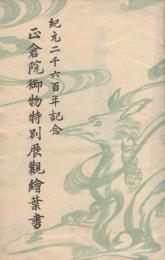 紀元二千六百年記念
正倉院御物特別展觀繪葉書